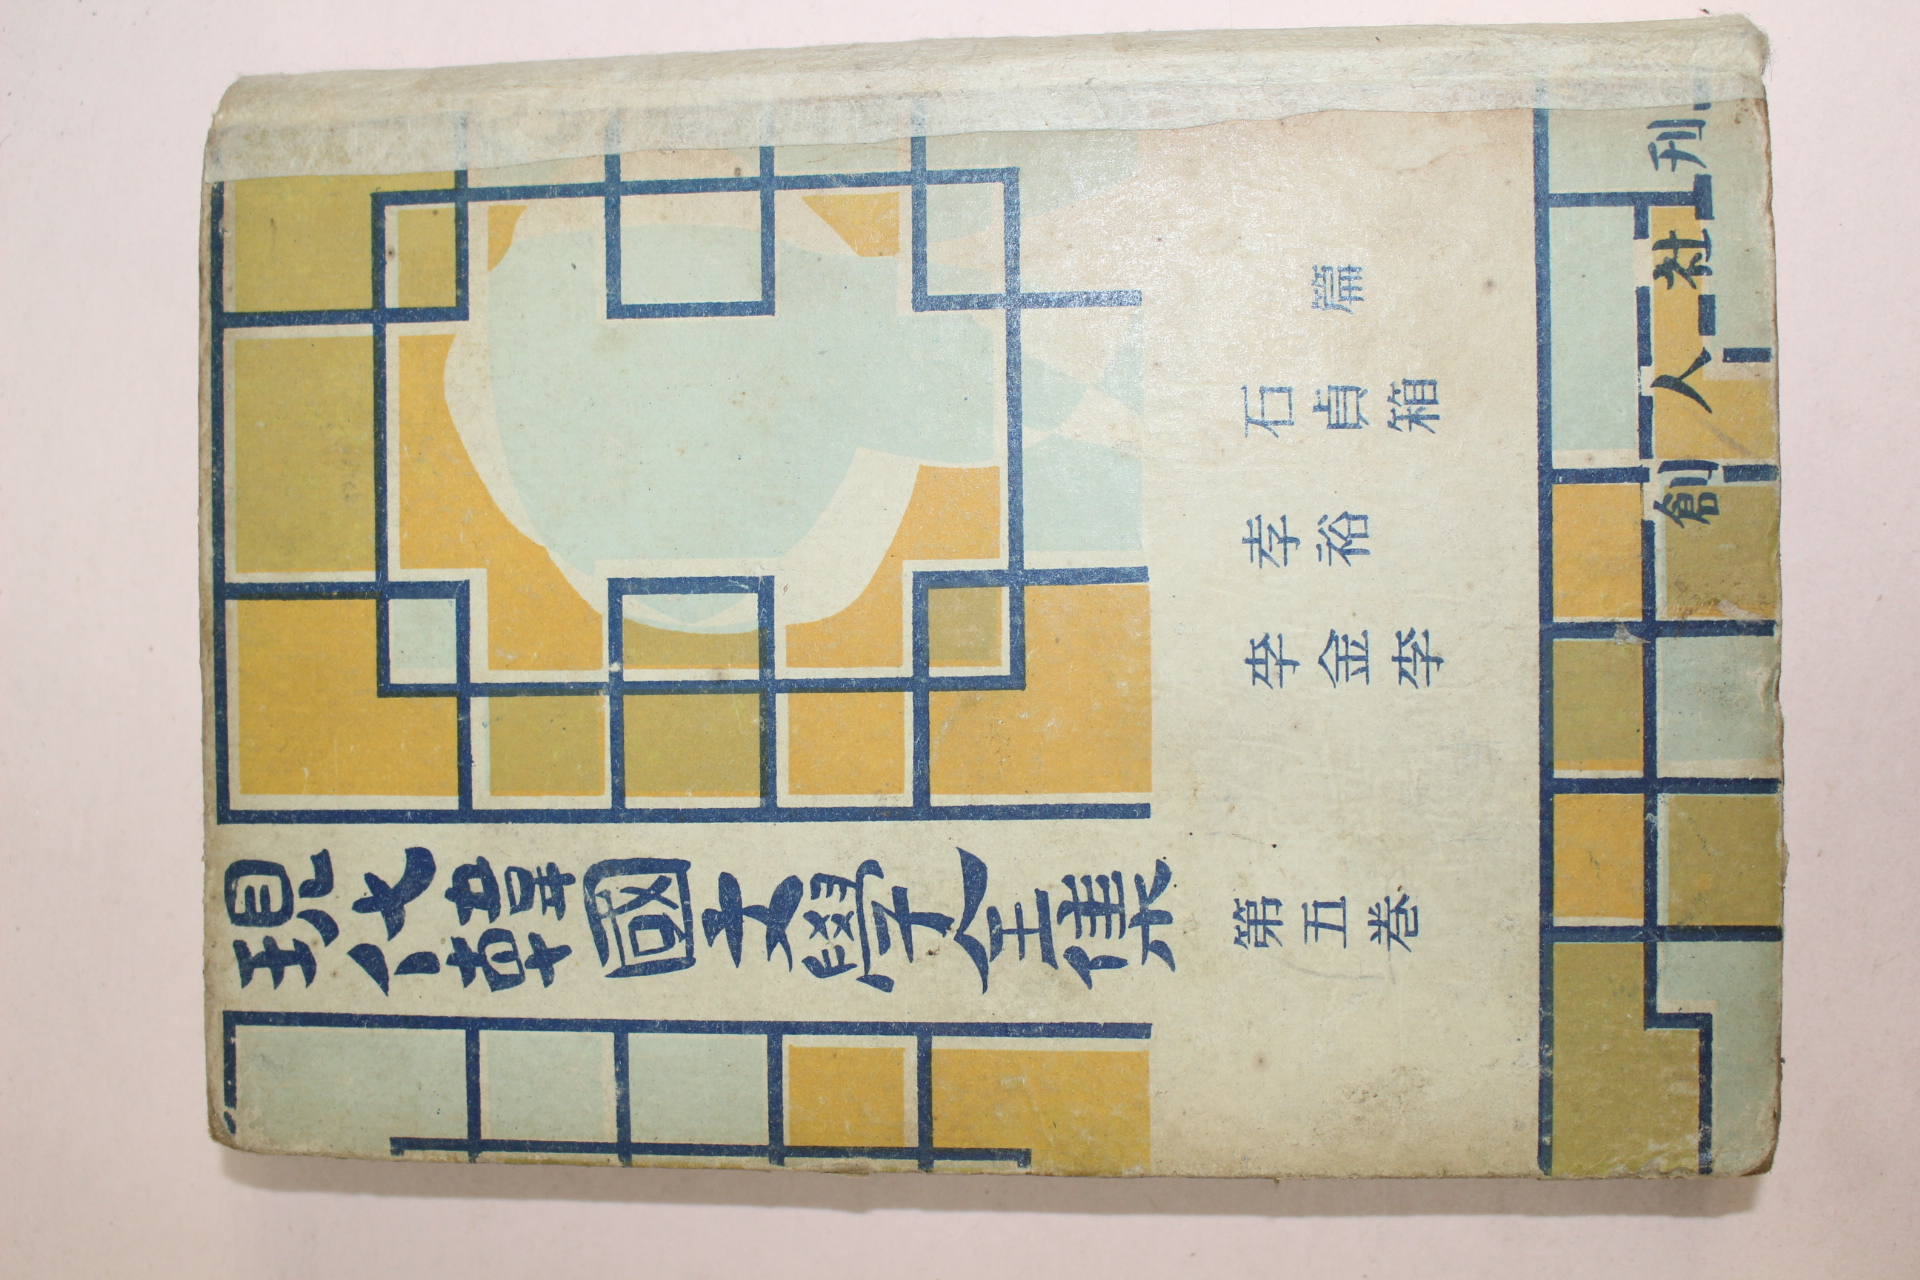 現代韓國文學全集
第五卷
李孝石
金裕貞 篇
李箱
創人社刊